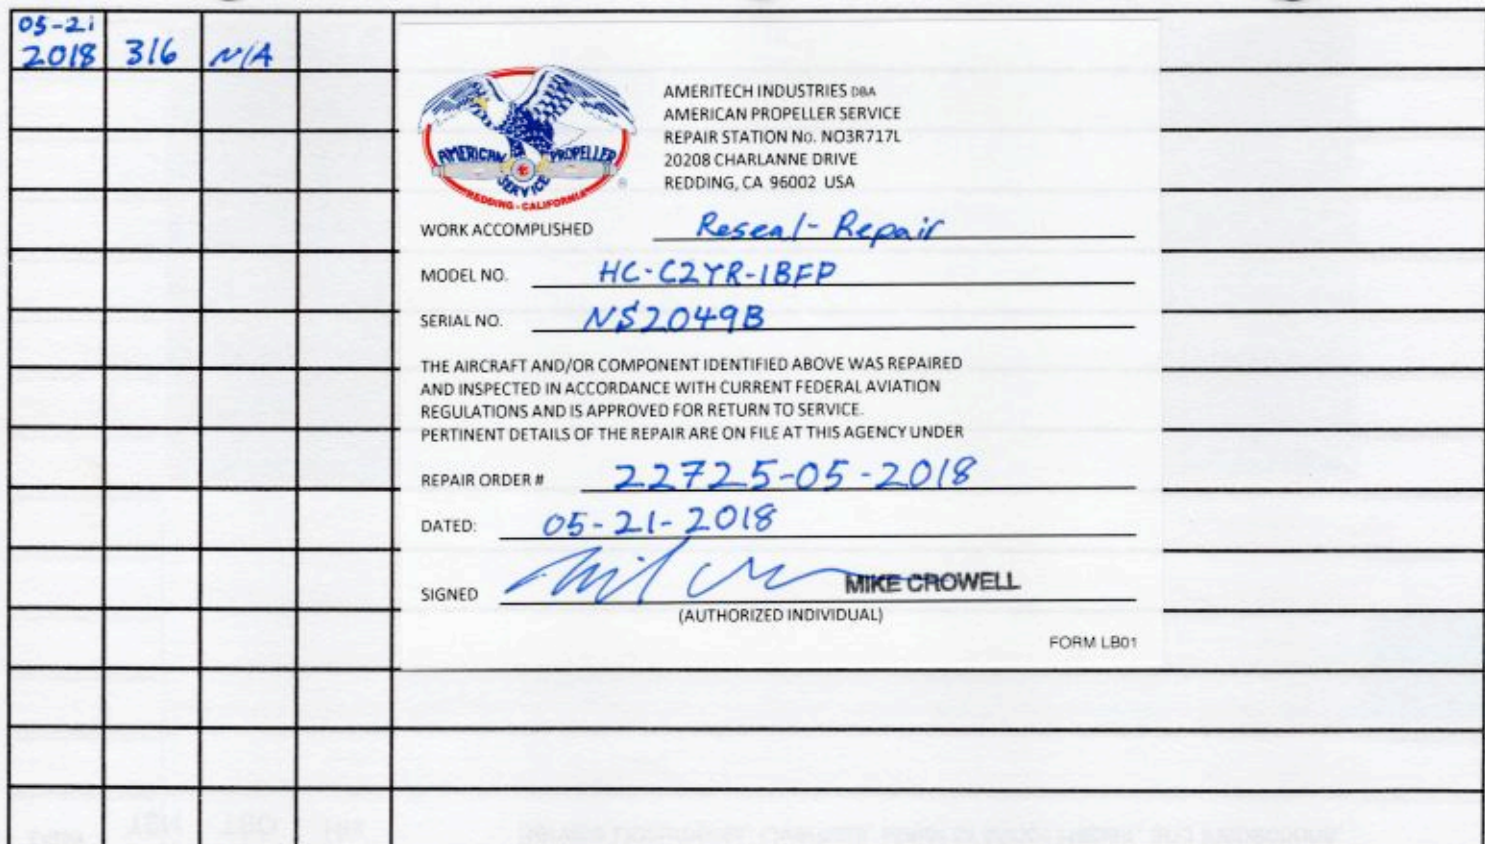 05-21
2018 316 N/A
AMERICAN PROPELLER
SERVICE
REDDING - CALIFORNIA
®
AMERITECH INDUSTRIES DBA
AMERICAN PROPELLER SERVICE
REPAIR STATION No. NO3R717L
20208 CHARLANNE DRIVE
REDDING, CA 96002 USA
WORK ACCOMPLISHED Reseal-Repair
MODEL NO. HC-C2YR-1BFP
SERIAL NO. NS2049B
THE AIRCRAFT AND/OR COMPONENT IDENTIFIED ABOVE WAS REPAIRED
AND INSPECTED IN ACCORDANCE WITH CURRENT FEDERAL AVIATION
REGULATIONS AND IS APPROVED FOR RETURN TO SERVICE.
PERTINENT DETAILS OF THE REPAIR ARE ON FILE AT THIS AGENCY UNDER
REPAIR ORDER # 22725-05-2018
DATED: 05-21-2018
SIGNED MIKE CROWELL
(AUTHORIZED INDIVIDUAL)
FORM LB01